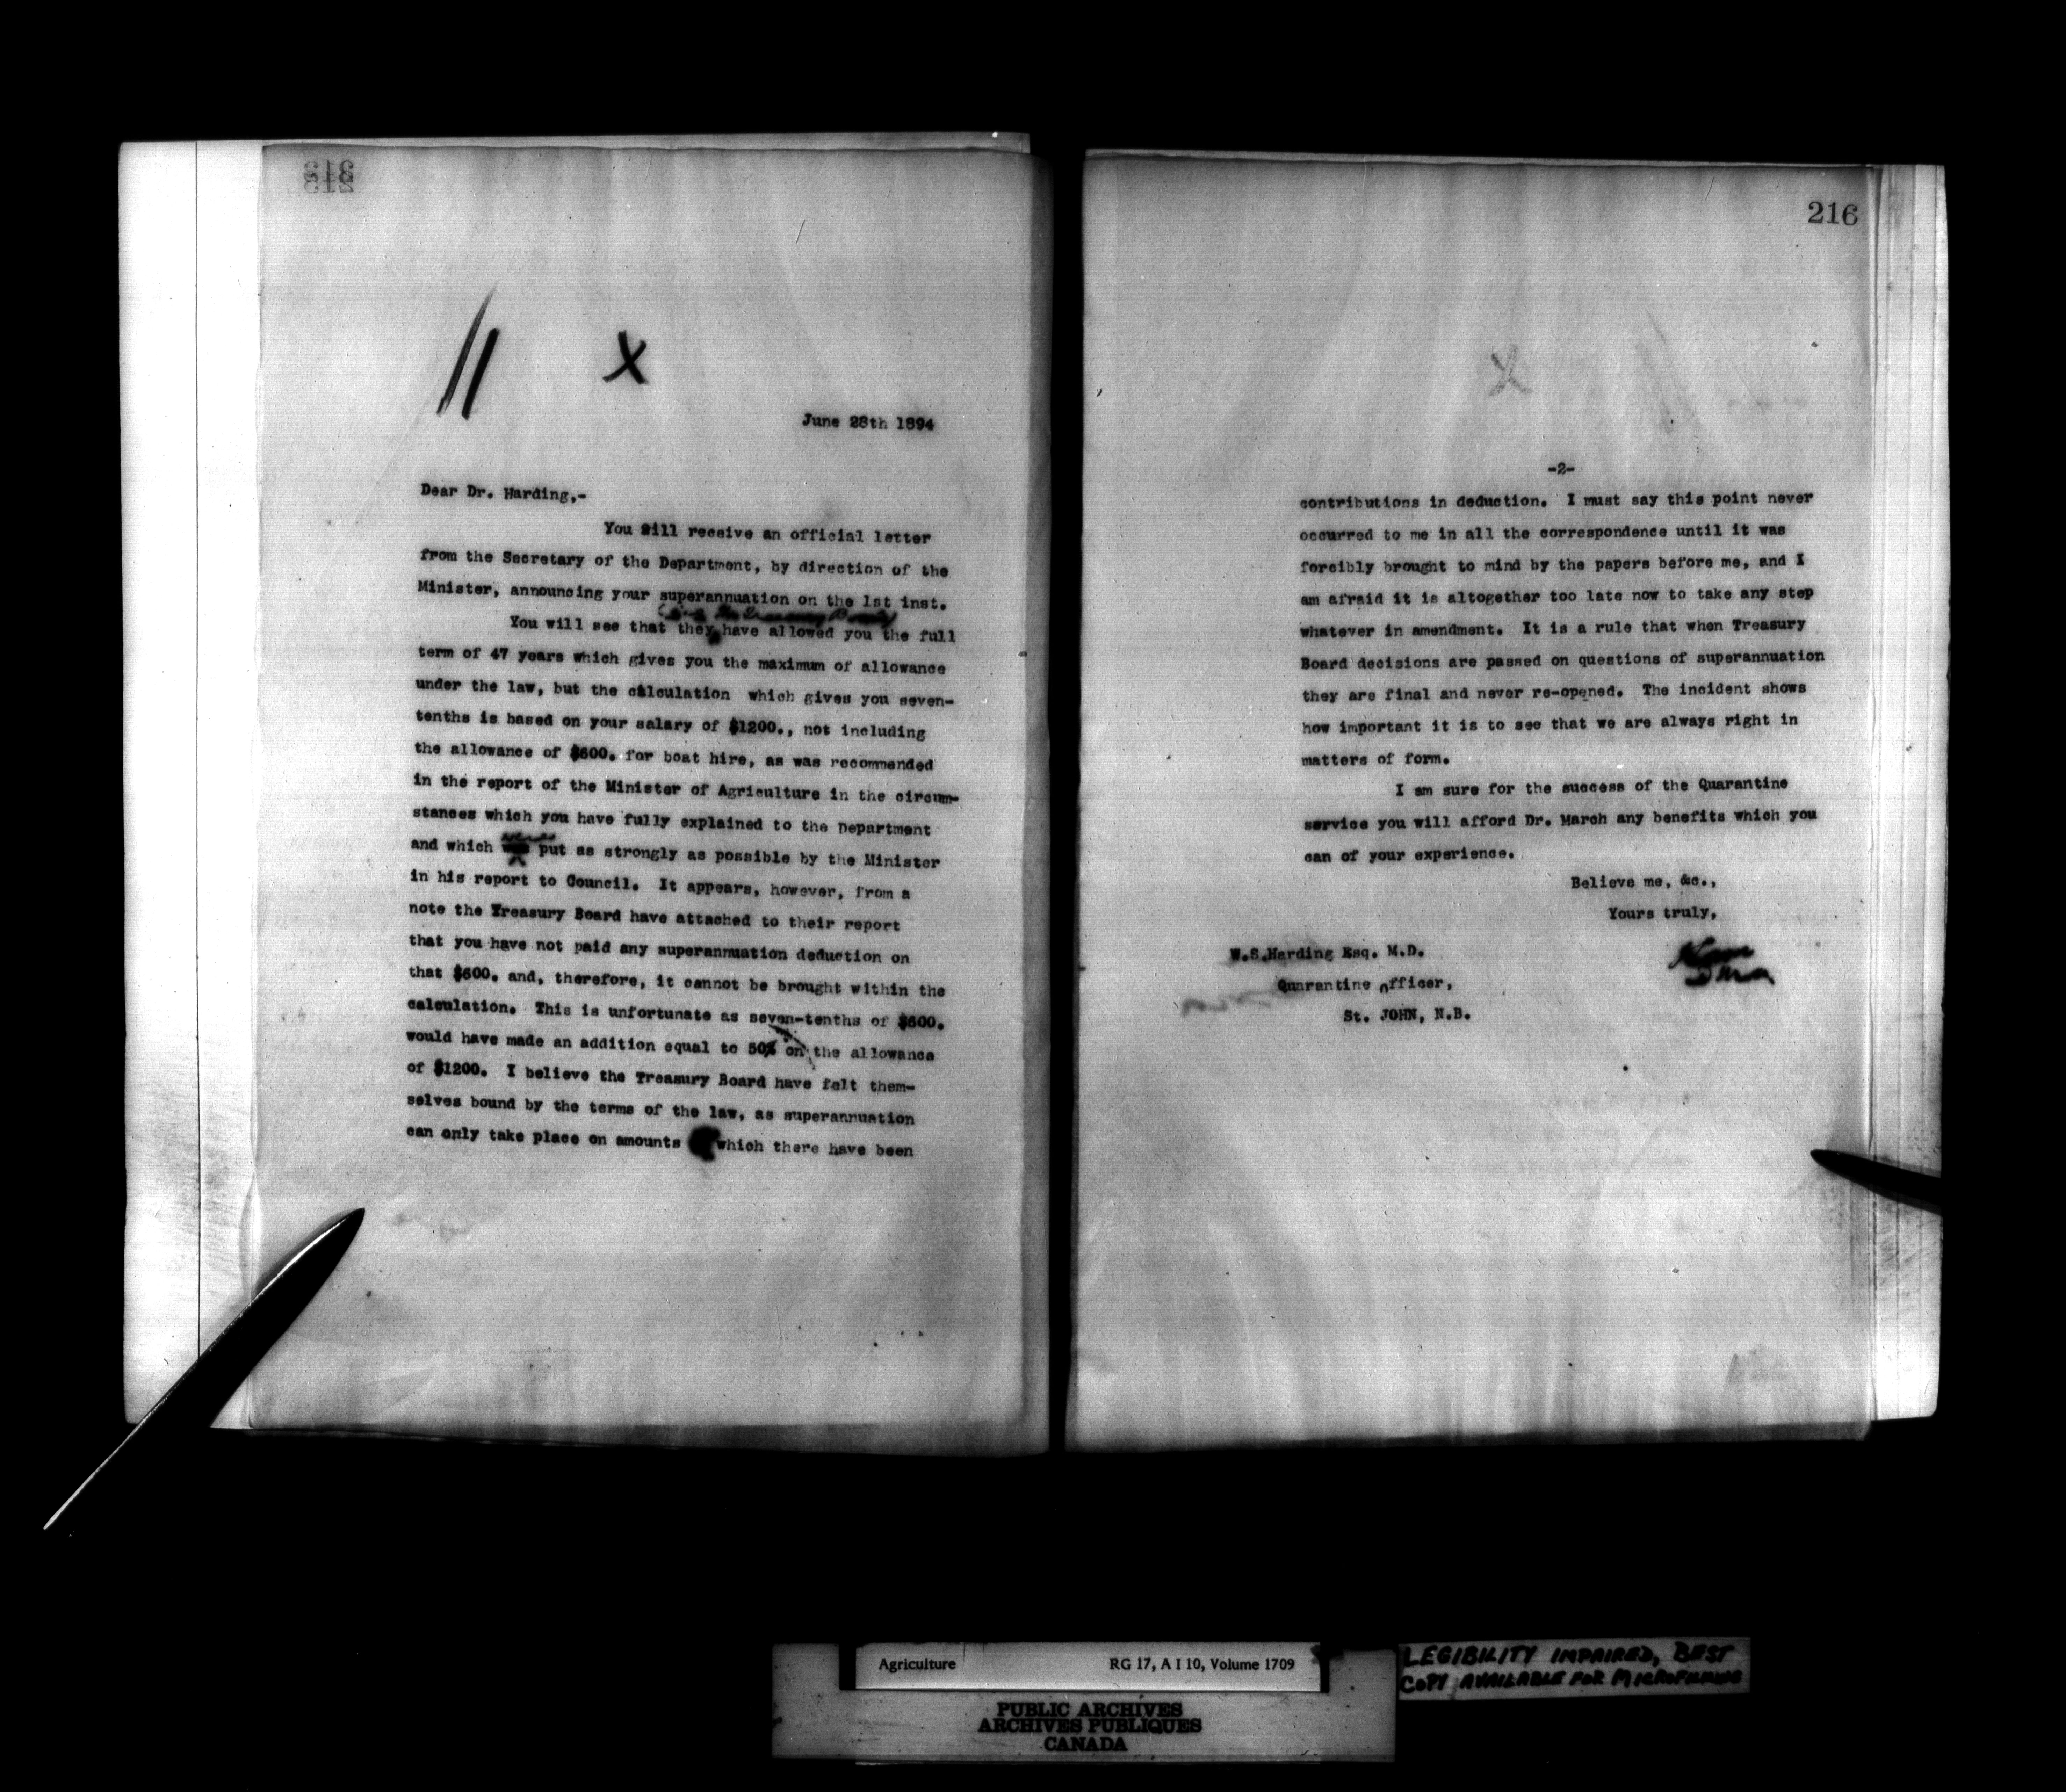 June 28th 1894
Dear Dr. Harding,-
You will receive an official letter
from the Secretary of the Department, by direction of the
Minister, announcing your superannuation on the 1st inst.
(i.e. the Treasury Board)
You will see that they have allowed you the full
term of 47 years which gives you the maximum of allowance
under the law, but the calculation which gives you seven-
tenths is based on your salary of $1200., not including
the allowance of $600. for boat hire, as was recommended
in the report of the Minister of Agriculture in the circum-
stances which you have fully explained to the Department
and which put as strongly as possible by the Minister
in his report to Council. It appears, however, from a
note the Treasury Board have attached to their report
that you have not paid any superannuation deduction on
that $600. and, therefore, it cannot be brought within the
calculation. This is unfortunate as seven-tenths of $600.
would have made an addition equal to 50% on the allowance
of $1200. I believe the Treasury Board have felt them-
selves bound by the terms of the law, as superannuation
can only take place on amounts which there have been
216
-2-
contributions in deduction. I must say this point never
occurred to me in all the correspondence until it was
forcibly brought to mind by the papers before me, and I
am afraid it is altogether too late now to take any step
whatever in amendment. It is a rule that when Treasury
Board decisions are passed on questions of superannuation
they are final and never re-opened. The incident shows
how important it is to see that we are always right in
matters of form.
I am sure for the success of the Quarantine
service you will afford Dr. March any benefits which you
can of your experience.
Believe me, &c.,
Yours truly,
W.S.Harding Esq. M.D.
Quarantine Officer,
St. JOHN, N.B.
Agriculture RG 17, A I 10, Volume 1709
LEGIBILITY IMPAIRED, BEST
COPY AVAILABLE FOR MICROFILMING
PUBLIC ARCHIVES
ARCHIVES PUBLIQUES
CANADA